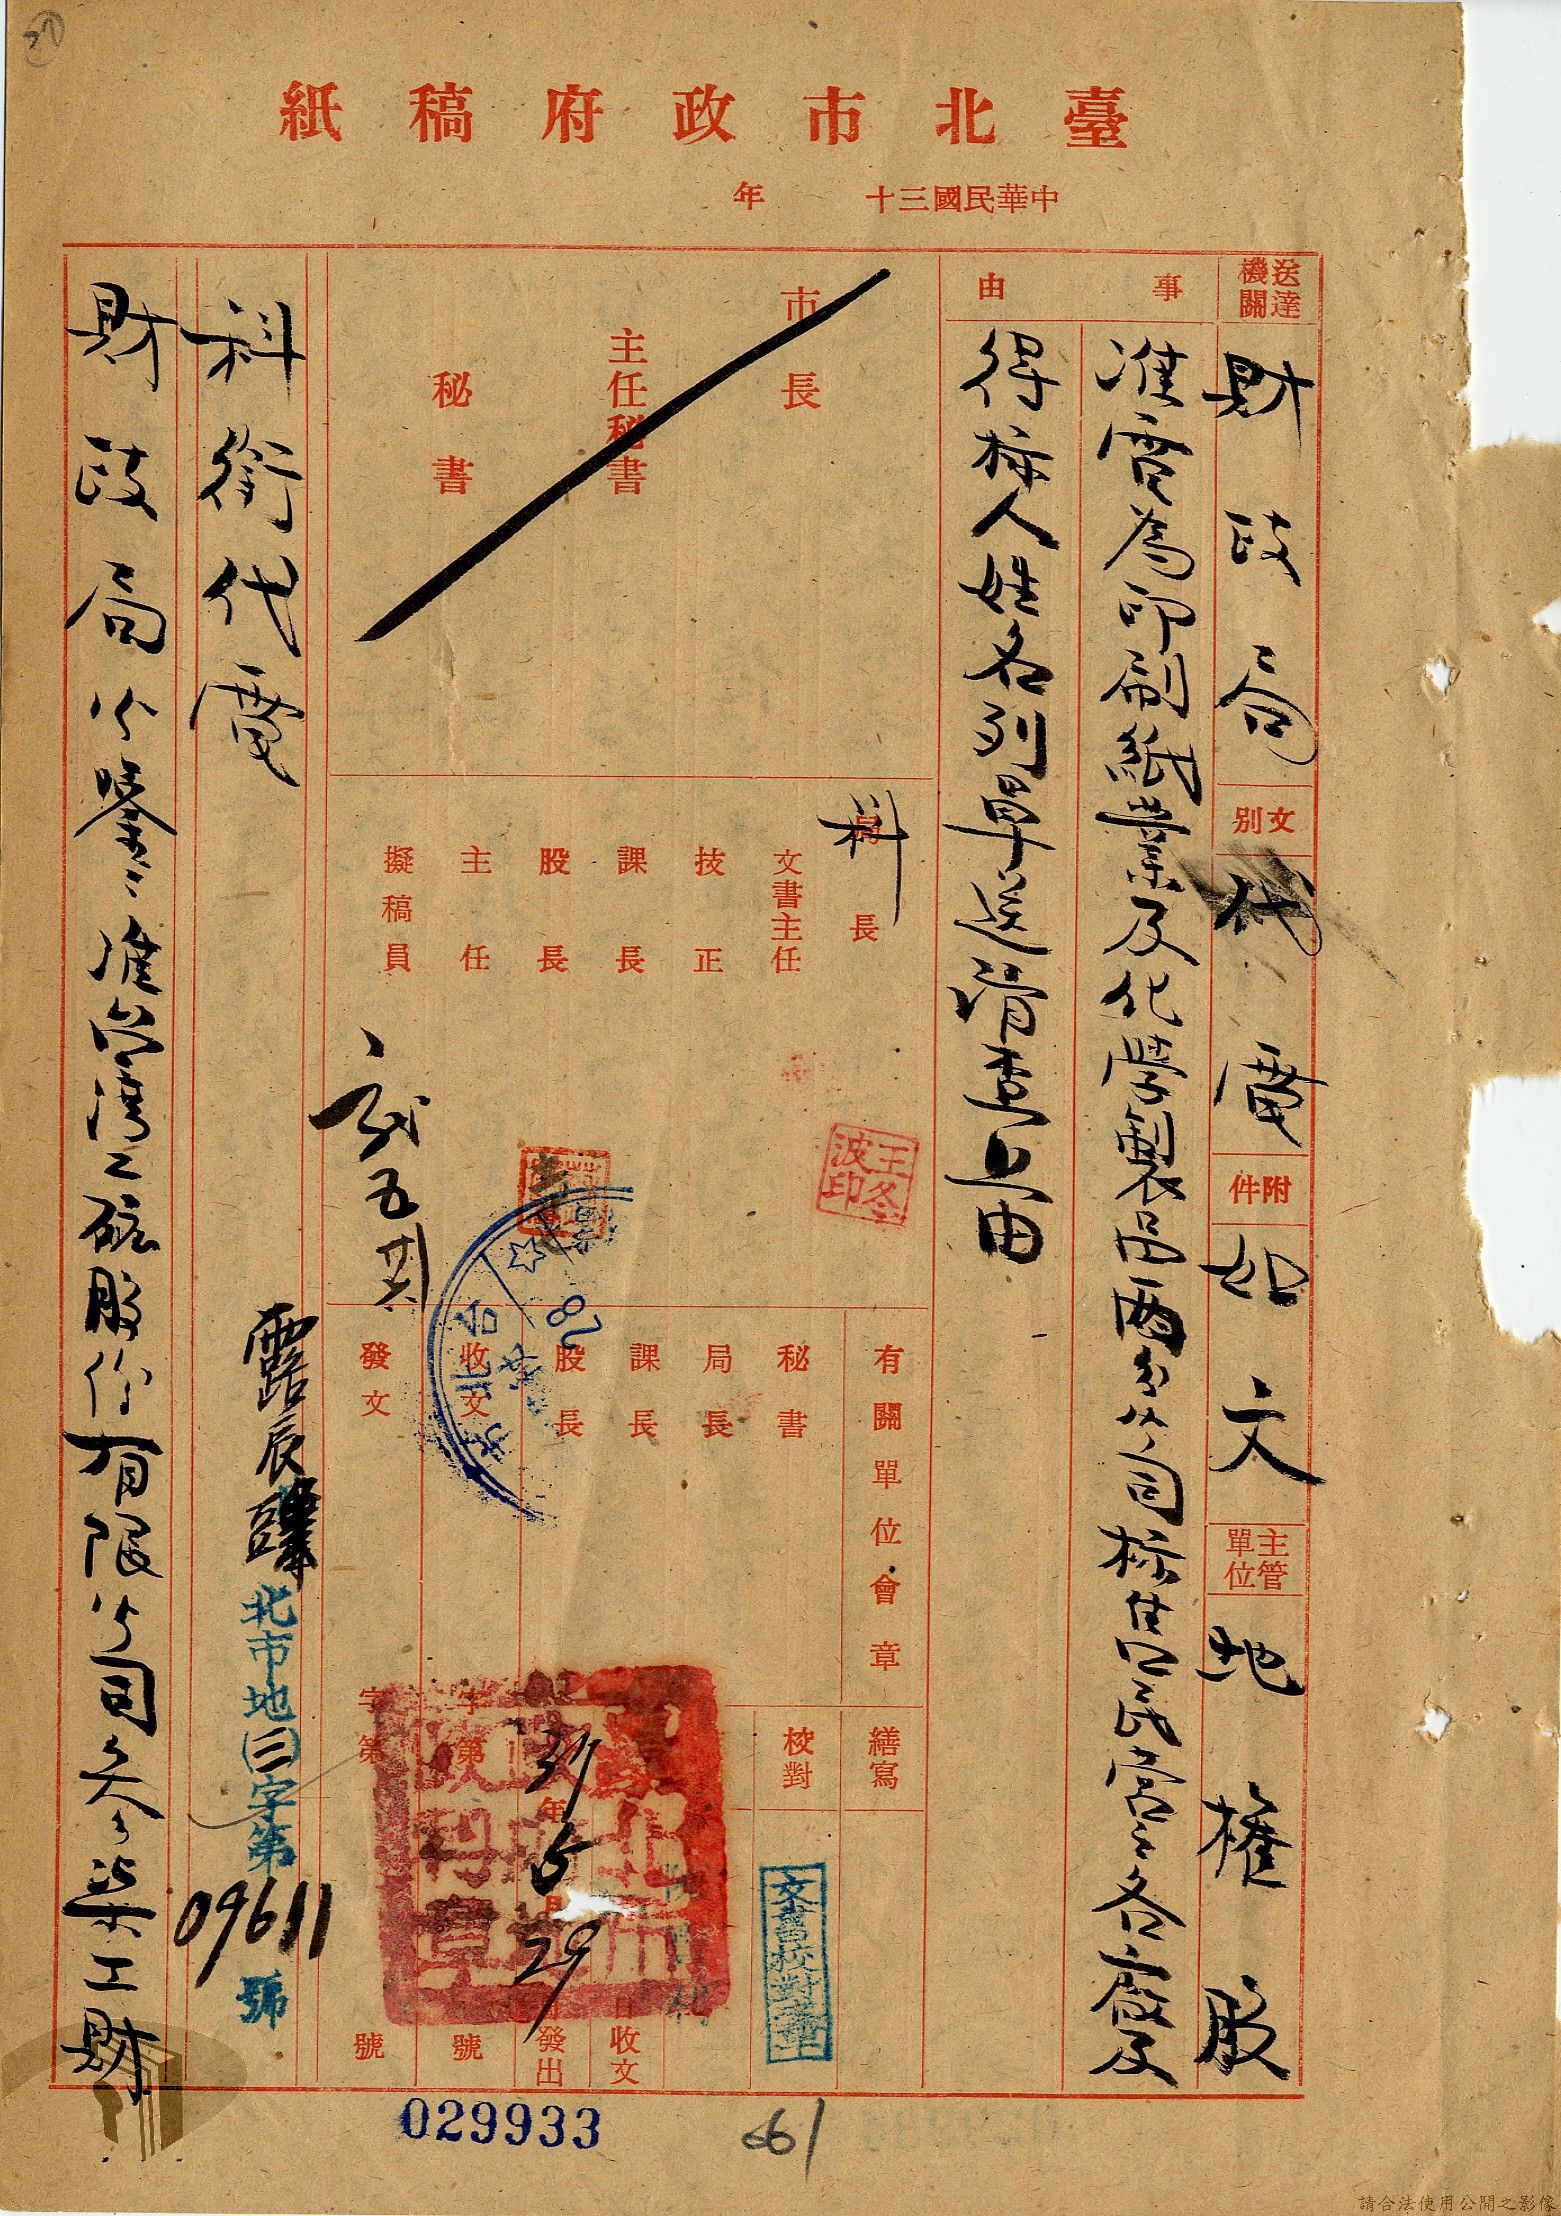 臺北市政府稿紙
中華民國三十 年
送達機關 財政局
文別 代電
附件 如文
主管單位 地權股
事由
准電為印刷紙業及化學製品兩分公司標售民營之各廠及
得標人姓名列單送請查照由
市長
主任秘書
秘書
科長
局
文書主任
技正
課長
股長
主任
擬稿員
王冬波印
五 廿六
有關單位會章
秘書
局長
課長
股長
收文
發文
台北
28
繕寫
校對
文書校對
字第 號
字第 號
37年5月29日發出
日收文
科銜代電
辰
北市地(二)字第09611號
財政局公鑒准台灣工礦股份有限公司 工財
029933
661
請合法使用公開之影像